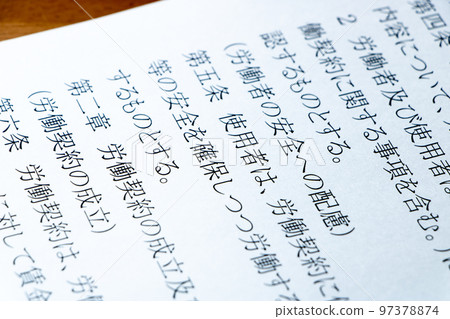 第四条
内容について、
2 労働者及び使用者は
働契約に関する事項を含む。)
認するものとする。
(労働者の安全への配慮)
第五条 使用者は、労働契約に
等の安全を確保しつつ労働する
するものとする。
第二章 労働契約の成立及
(労働契約の成立)
第六条 労働契約は、労
に対して賃金
pixta.jp - 97378874